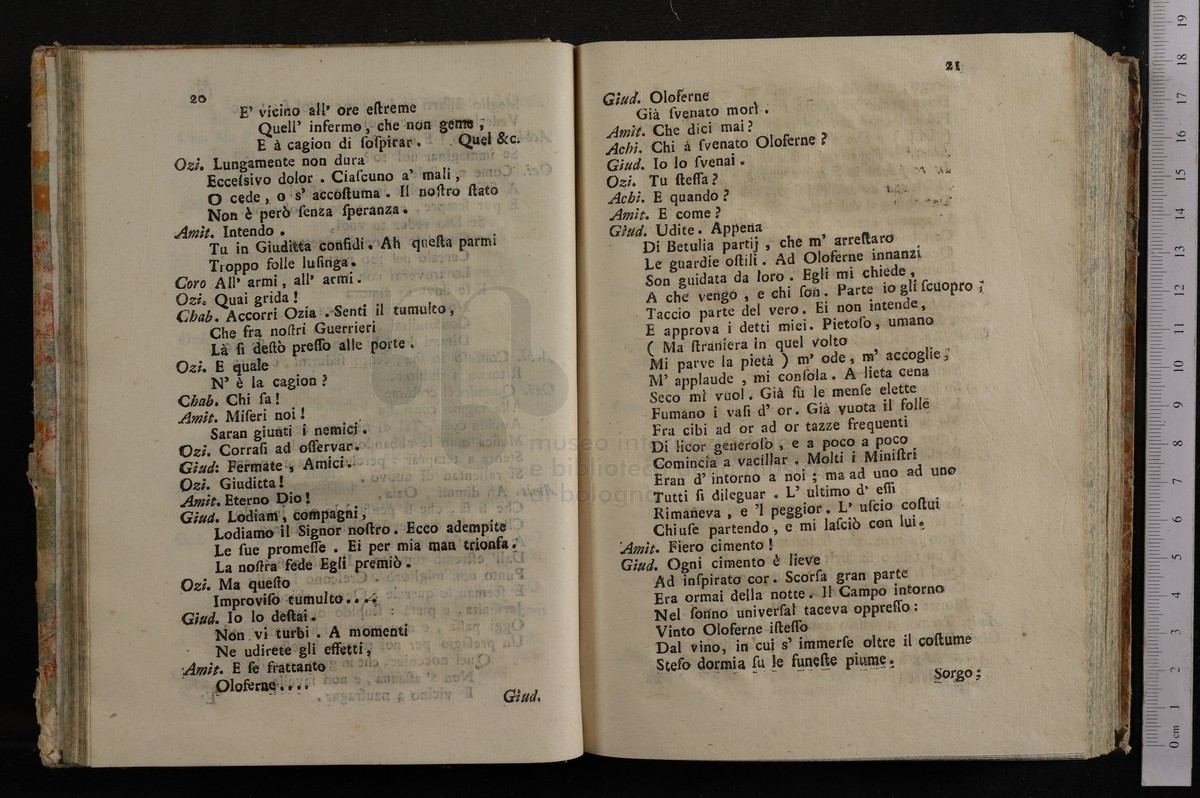 20
E' vicino all' ore eſtreme
Quell' infermo, che non geme,
E à cagion di ſoſpirar. Quel &c.
Ozi. Lungamente non dura
Ecceſsivo dolor. Ciaſcuno a' mali,
O cede, o s' accoſtuma. Il noſtro ſtato
Non è però ſenza ſperanza.
Amit. Intendo.
Tu in Giuditta confidi. Ah queſta parmi
Troppo folle luſinga.
Coro All' armi, all' armi.
Ozi. Quai grida!
Chab. Accorri Ozia. Senti il tumulto,
Che fra noſtri Guerrieri
Là ſi deſtò preſſo alle porte.
Ozi. E quale
N' è la cagion?
Chab. Chi ſa!
Amit. Miſeri noi!
Saran giunti i nemici.
Ozi. Corraſi ad oſſervar.
Giud: Fermate, Amici.
Ozi. Giuditta!
Amit. Eterno Dio!
Giud. Lodiam, compagni,
Lodiamo il Signor noſtro. Ecco adempite
Le ſue promeſſe. Ei per mia man trionfa.
La noſtra fede Egli premiò.
Ozi. Ma queſto
Improviſo tumulto....
Giud. Io lo deſtai.
Non vi turbi. A momenti
Ne udirete gli effetti,
Amit. E ſe frattanto
Oloferne....
Giud.
21
Giud. Oloferne
Già ſvenato morì.
Amit. Che dici mai?
Achi. Chi à ſvenato Oloferne?
Giud. Io lo ſvenai.
Ozi. Tu ſteſſa?
Achi. E quando?
Amit. E come?
Giud. Udite. Appena
Di Betulia partij, che m' arreſtaro
Le guardie oſtili. Ad Oloferne innanzi
Son guidata da loro. Egli mi chiede,
A che vengo, e chi ſon. Parte io gli ſcuopro;
Taccio parte del vero. Ei non intende,
E approva i detti miei. Pietoſo, umano
( Ma ſtraniera in quel volto
Mi parve la pietà ) m' ode, m' accoglie,
M' applaude, mi conſola. A lieta cena
Seco mi vuol. Già ſu le menſe elette
Fumano i vaſi d' or. Già vuota il folle
Fra cibi ad or ad or tazze frequenti
Di licor generoſo, e a poco a poco
Comincia a vacillar. Molti i Miniſtri
Eran d' intorno a noi; ma ad uno ad uno
Tutti ſi dileguar. L' ultimo d' eſſi
Rimaneva, e 'l peggior. L' uſcio coſtui
Chiuſe partendo, e mi laſciò con lui.
Amit. Fiero cimento!
Giud. Ogni cimento è lieve
Ad inſpirato cor. Scorſa gran parte
Era ormai della notte. Il Campo intorno
Nel ſonno univerſal taceva oppreſſo:
Vinto Oloferne iſteſſo
Dal vino, in cui s' immerſe oltre il coſtume
Steſo dormia ſu le funeſte piume.
Sorgo;